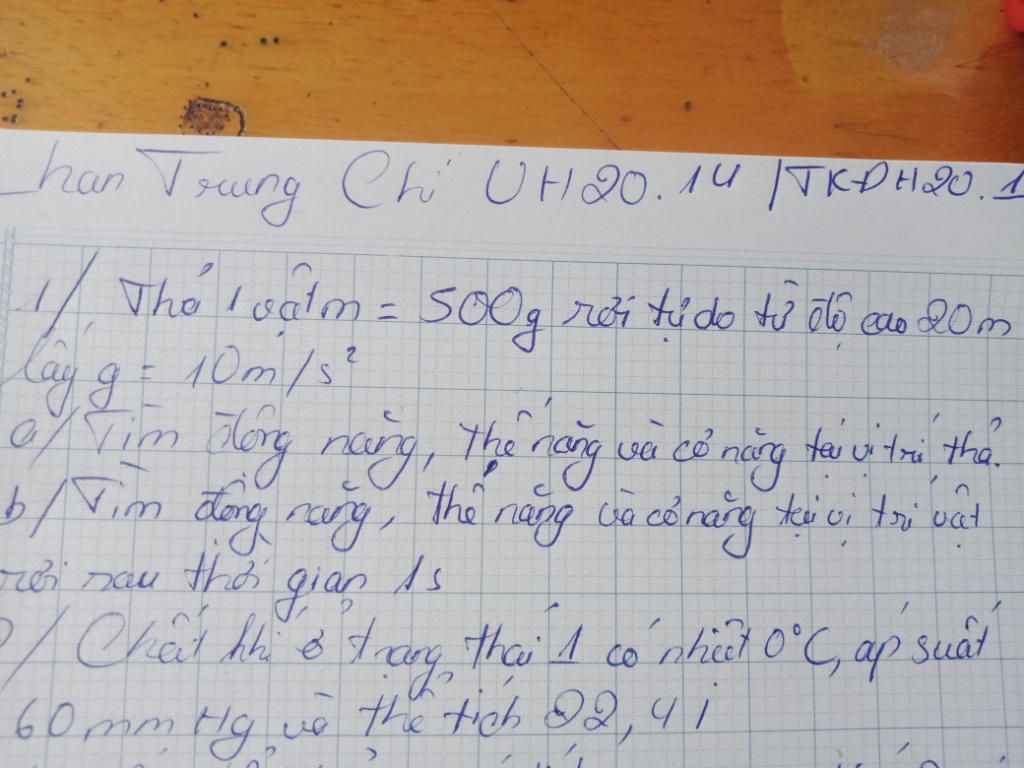 han Trung Chí UH20.14 / TKĐH20.1
1/ Thả 1 vật m = 500g rơi tự do từ độ cao 20m
lấy g = 10m/s²
a/ Tìm động năng, thế năng và cơ năng tại vị trí thả.
b/ Tìm động năng, thế năng và cơ năng tại vị trí vật
rơi sau thời gian 1s
/ Chất khí ở trạng thái 1 có nhiệt 0°C, áp suất
60mmHg và thể tích 22,4l